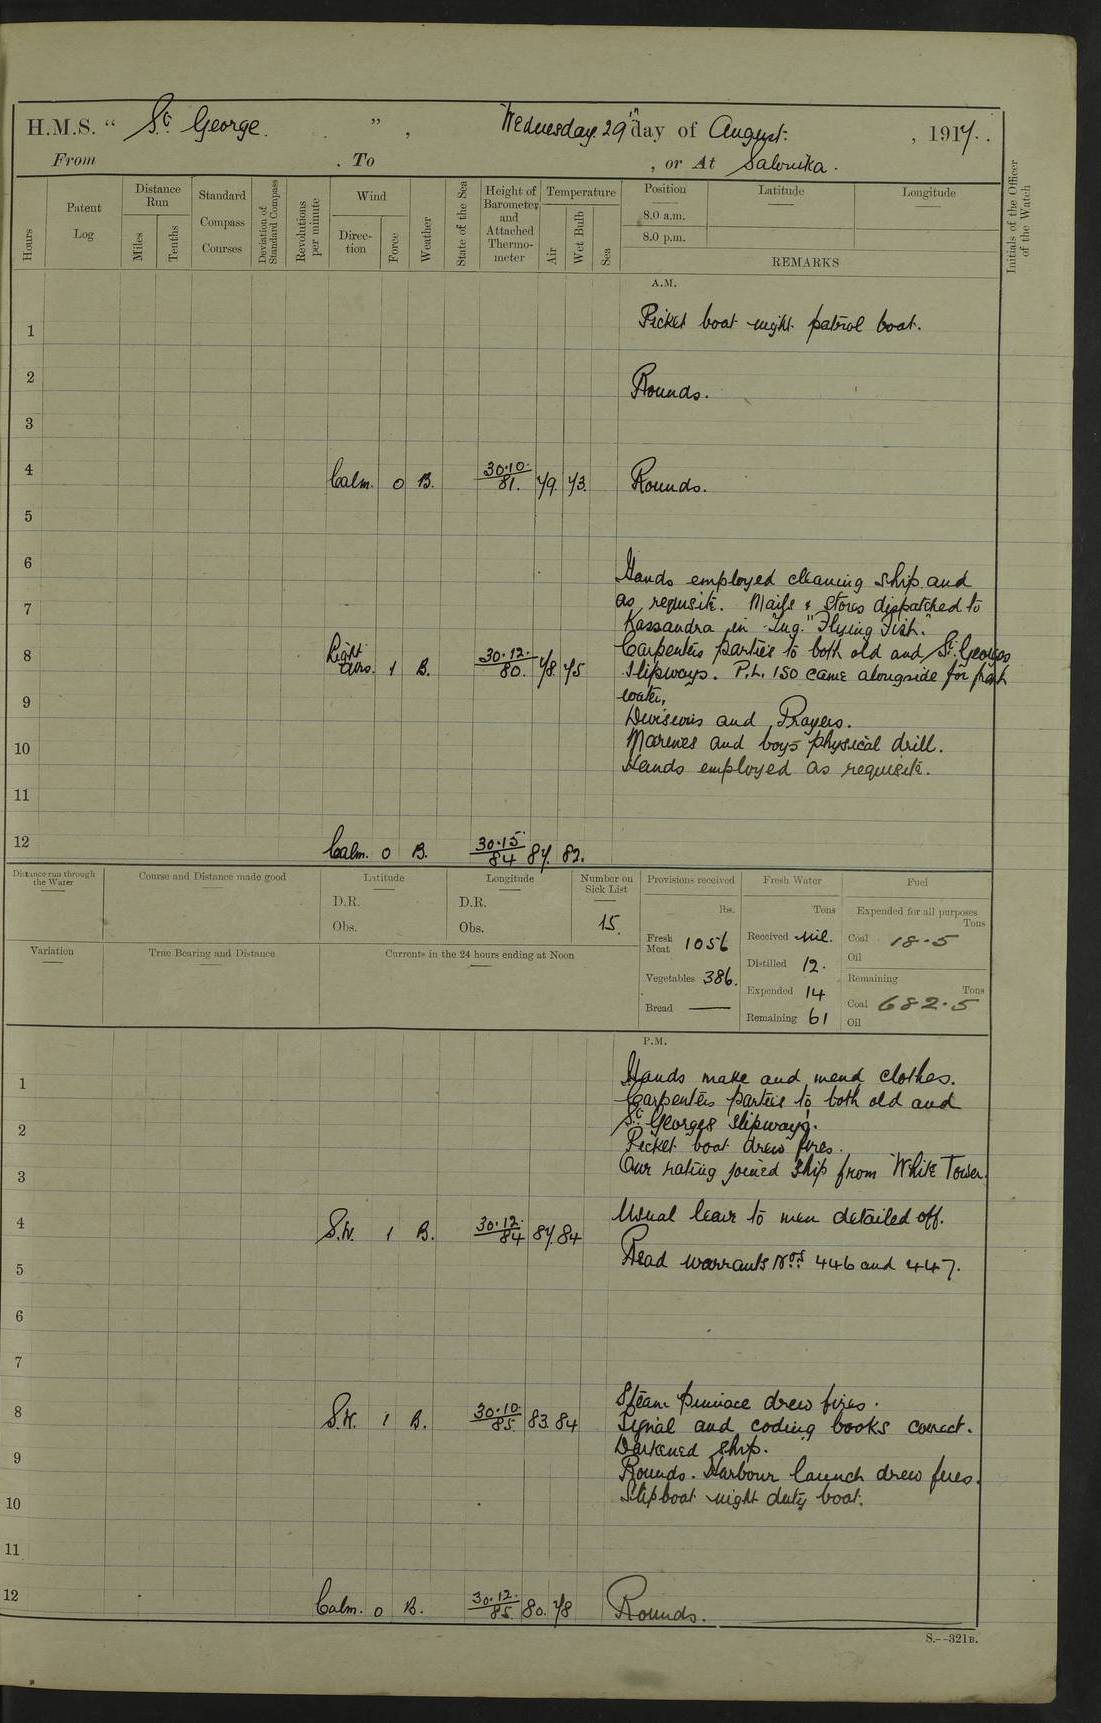 H.M.S. " St George. " , Wednesday. 29th day of August. , 1917.
From . To , or At Salonika.
Hours
Patent Log
Distance Run
Miles
Tenths
Standard Compass Courses
Deviation of Standard Compass
Revolutions per minute
Wind
Direction
Force
Weather
State of the Sea
Height of Barometer, and Attached Thermometer
Temperature
Air
Wet Bulb
Sea
Position
8.0 a.m.
8.0 p.m.
Latitude
Longitude
REMARKS
Initials of the Officer of the Watch
A.M.
1 Picket boat night patrol boat.
2 Rounds.
3
4 Calm. 0 B. 30.10. 81. 79. 73. Rounds.
5
6 Hands employed cleaning ship and
7 as requisite. Mails & stores dispatched to
Kassandra in Tug. "Flying Fish."
8 Light airs. 1 B. 30.12. 80. 78. 75 Carpenters parties to both old and St Georges
slipways. P.L. 150 came alongside for fresh
9 water,
Divisions and Prayers.
10 Marines and boys physical drill.
Hands employed as requisite.
11
12 Calm. 0 B. 30.15 84 87. 82.
Distance run through the Water
Course and Distance made good
Latitude
D.R.
Obs.
Longitude
D.R.
Obs.
Number on Sick List
15.
Provisions received
lbs.
Fresh Meat 1056
Vegetables 386.
Bread —
Fresh Water
Tons
Received Nil.
Distilled 12.
Expended 14
Remaining 61
Fuel
Expended for all purposes
Tons
Coal 18.5
Oil
Remaining
Tons
Coal 682.5
Oil
Variation
True Bearing and Distance
Currents in the 24 hours ending at Noon
P.M.
1 Hands make and mend clothes.
Carpenters parties to both old and
2 St Georges slipways.
Picket boat drew fires.
3 One rating joined ship from White Tower.
4 S.W. 1 B. 30.12. 84 87. 84 Usual leave to men detailed off.
5 Read warrants Nos 446 and 447.
6
7
8 S.W. 1 B. 30.10. 85. 83. 84 Steam pinnace drew fires.
Signal and coding books correct.
9 Darkened ship.
Rounds. Harbour launch drew fires.
10 Slipboat night duty boat.
11
12 Calm. 0 B. 30.12. 85. 80. 78 Rounds.
S.—321B.